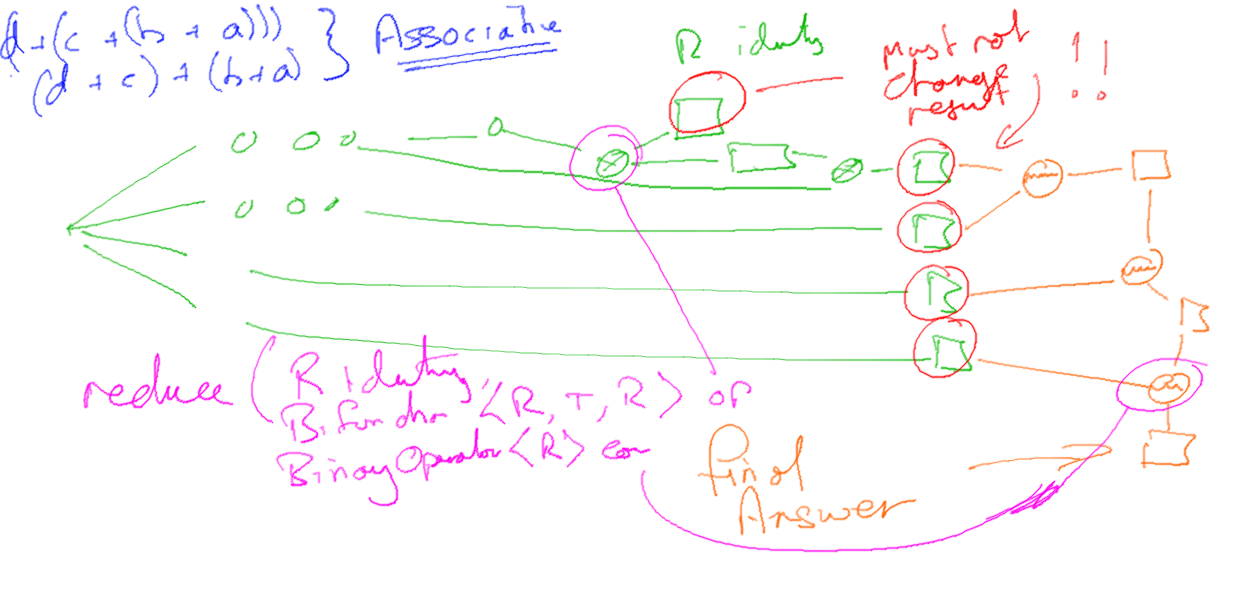 d+(c +(b + a)))
(d + c) + (b+a)
} Associative
R identity
Must not
change
result
!!
reduce ( R identity,
BiFunction <R, T, R> op
BinaryOperator <R> com
Final
Answer